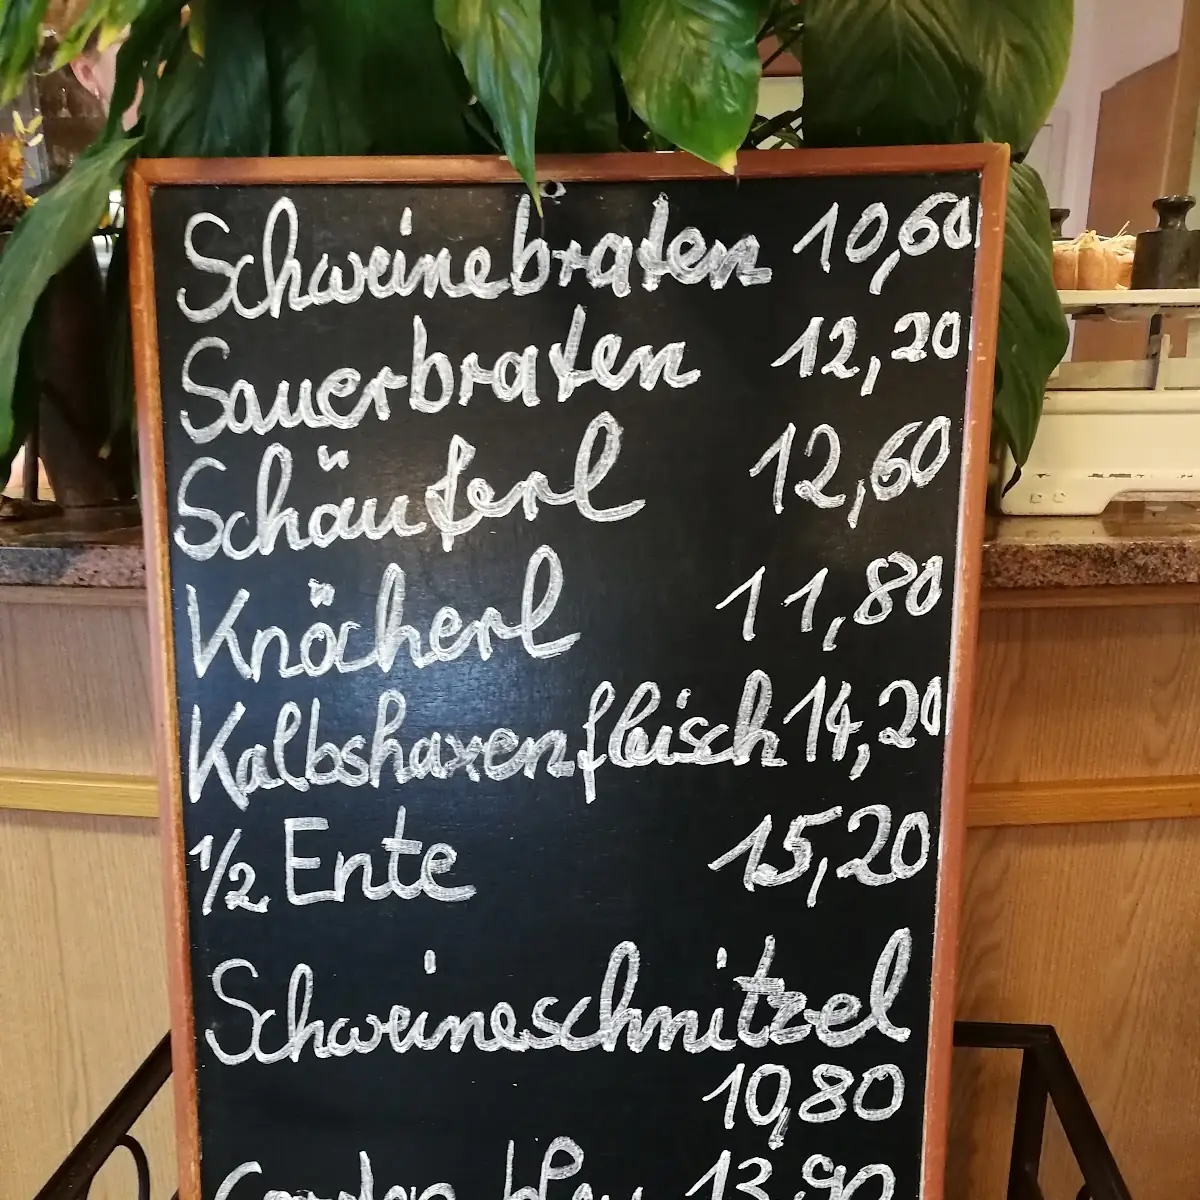 Schweinebraten 10,60
Sauerbraten 12,20
Schäuferl 12,60
Knöcherl 11,80
Kalbshaxenfleisch 14,20
1/2 Ente 15,20
Schweineschnitzel
10,80
Cordon bleu 13,90